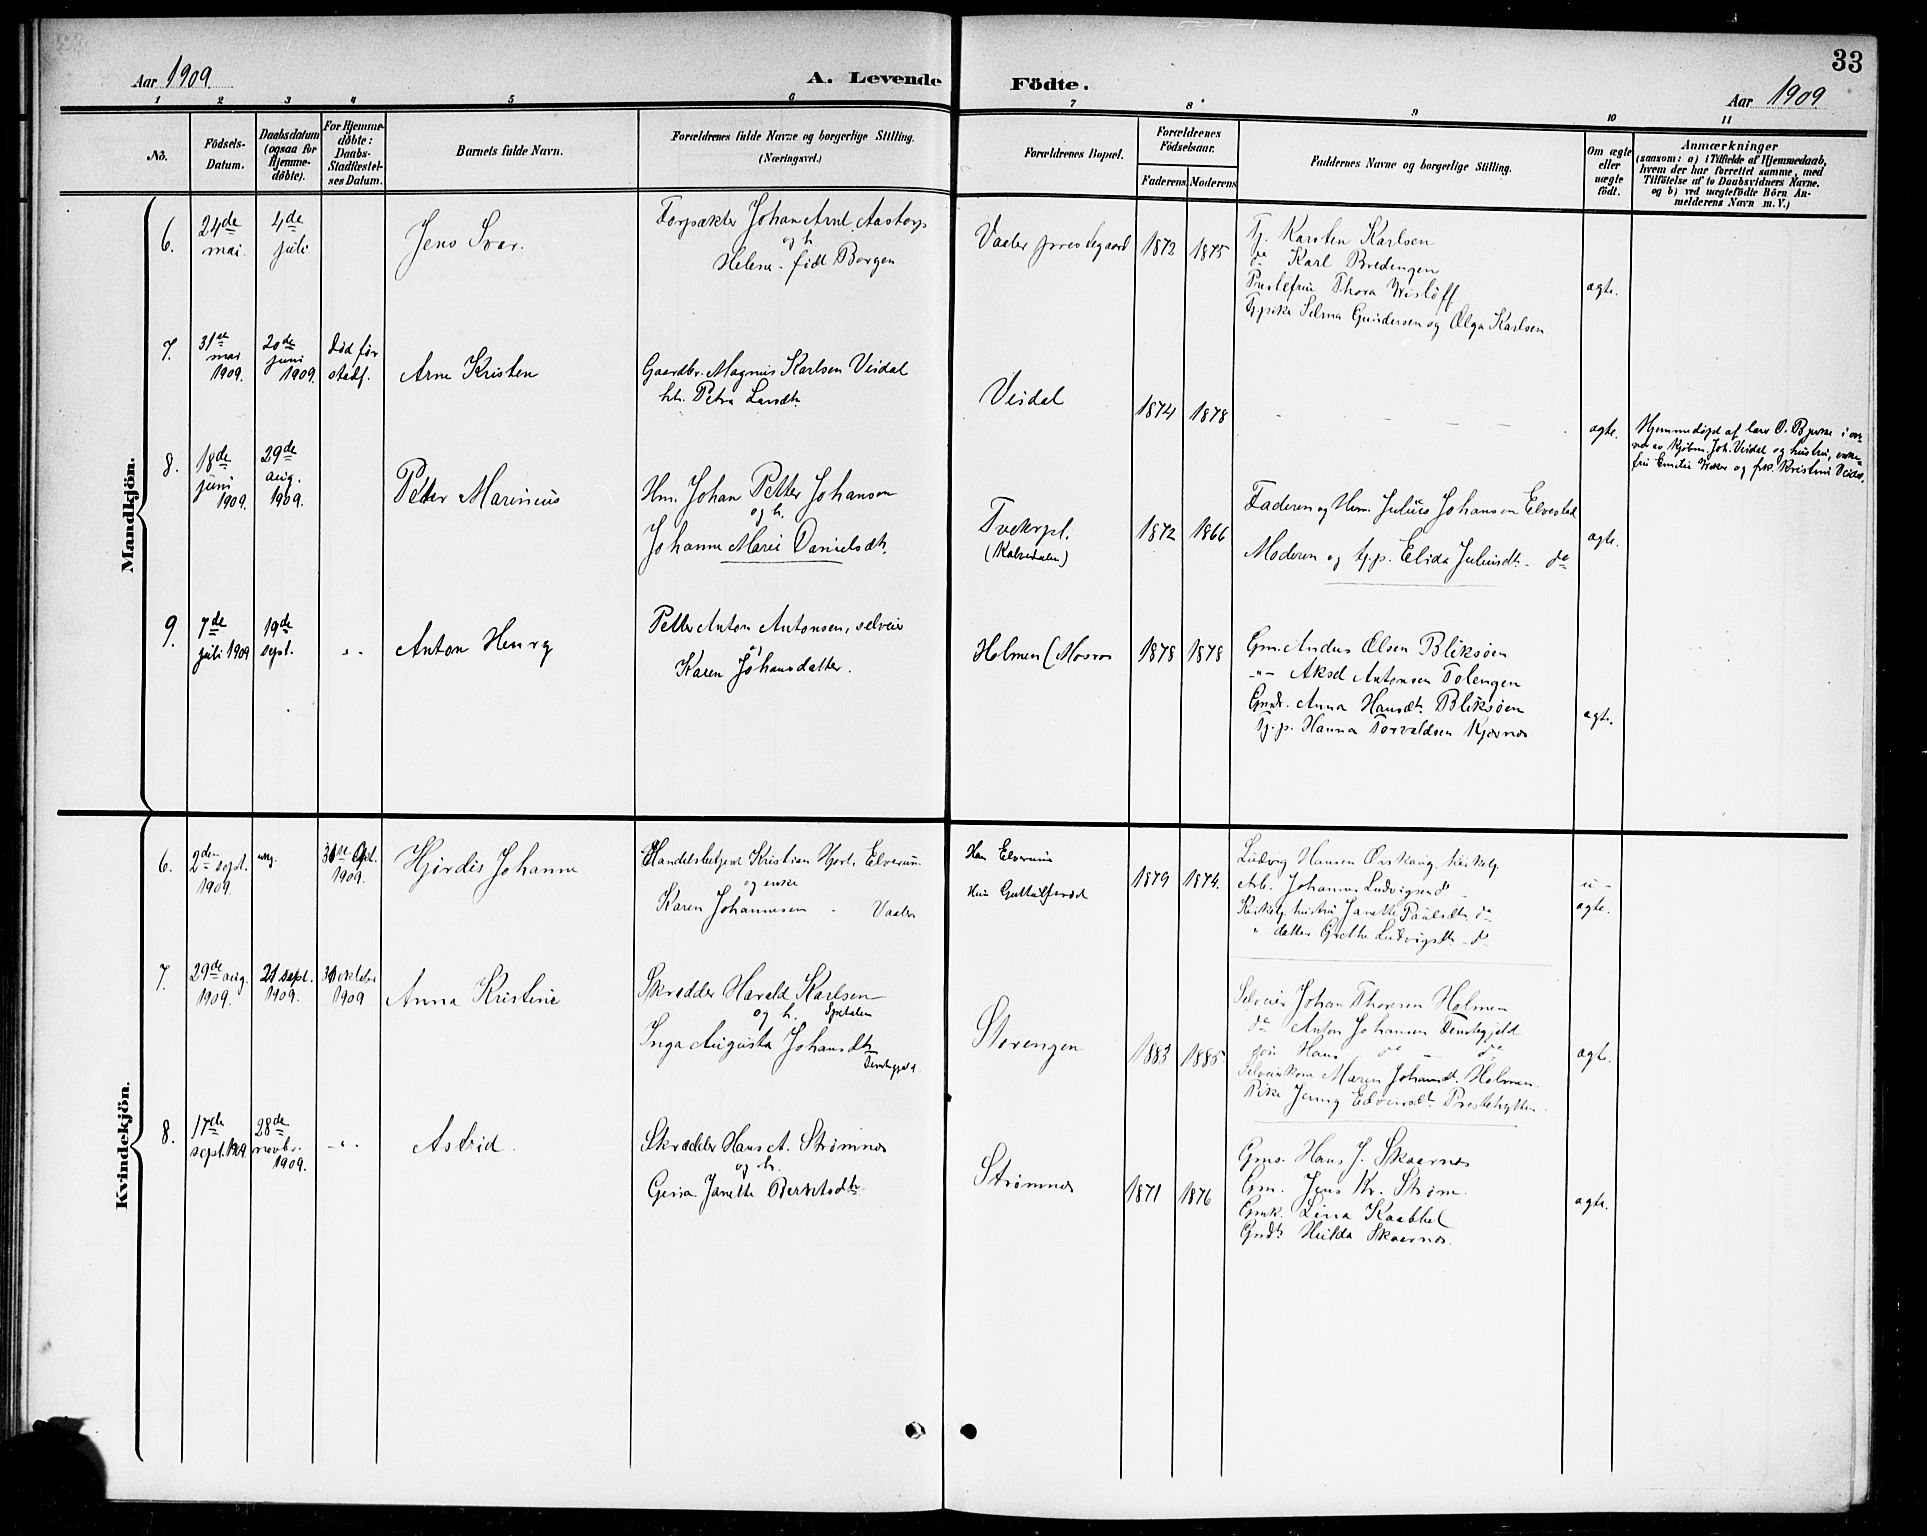 33
Aar 1909
A. Levende Födte.
Aar 1909
1 2 3 4 5 6 7 8 9 10 11
No.
Födsels-
Datum.
Daabsdatum
(ogsaa for
Hjemme-
döbte).
For Hjemme-
döbte:
Daabs-
Stadfæstel-
ses Datum.
Barnets fulde Navn.
Forældrenes fulde Navne og borgerlige Stilling.
(Næringsvei.)
Forældrenes Bopæl.
Forældrenes
Födselsaar.
Faderens Moderens
Faddernes Navne og borgerlige Stilling.
Om ægte
eller
uægte
født.
Anmærkninger
(saasom: a) i Tilfælde af Hjemmedaab,
hvem der har forrettet samme, med
Tilföielse af to Daabsvidners Navne.
og b) ved uægtefödte Börn An-
melderens Navn m. V.)
Mandkjön.
6.
24de
mai.
4de
juli
Jens Svar.
Forpakter Johan Arnt Aastorp
og h.
Helene født Borgen
Vaaler prestegaard
1872 1875
Tj. Karsten Karlsen
do Karl Bredengen
Prestefrue Thora Wisløff
Tj.pike Selma Gundersen og Olga Karlsen
ægte.
7.
31te
mai
1909.
20de
juni
1909.
død før
stadf.
Arne Kristen
Gaardbr. Magnus Karlsen Veidal
h. Petra Larsdt.
Veidal
1874 1878
- - - -
ægte.
Hjemmedøpt af
Joh. Veidal og hustru,
og frk. Kristine Veidal.
8.
18de
juni
1909.
29de
aug.
1909.
Petter Marinius
Hm. Johan Petter Johansen
og h.
Johanne Marie Danielsdt.
Tveterpl.
(Kalvedalen)
1872 1866
Faderen og Hm. Julius Johansen Elvestad
Moderen og tj.p. Elida Juliusdt. do
ægte.
9.
7de
juli 1909
19de
sept.
- " -
Anton Henry
Petter Anton Antonsen, selveier
Karen Johansdatter.
Holmen (Mosros
1878 1878
Gm. Anders Olsen Bliksøen
-"- Aksel Antonsen Tolengen
Gmdt. Anna Hansdt. Bliksøen
Tj.p. Hanna Torvaldsen Kjærnes
ægte.
Kvindekjön.
6.
2den sept.
1909.
1909.
Hjørdis Johanne
Handelsbetjent Kristian Hjort Elverum
og enke
Karen Johannesen - Vaaler
Han Elverum
Hun Guttulfsrød
1879 1874.
Ludvig Hansen Ørskaug, kirketj.
Arb. Johannes Ludvigsen do
Kirketj. hustru Janette Paulsdt. do
" datter Grethe Ludvigsdt. do
u-
ægte.
7.
29de aug.
1909.
21 sept.
1909.
31 oktober
1909
Anna Kristine
Skrædder Harald Karlsen
og h. Spetalen
Inga Augusta Johansdt.
Storengen
1883 1885.
Selveier Johan Thoresen Holmen
do Anton Johansen Tenstegjeld
gm Hans do - do
Selveierkone Maren Johansdt. Holmen.
Pike Jenny Edvinsdt. Prestehytten.
ægte.
8.
17de
sept. 1909.
28de
novbr.
1909.
- " -
Astrid.
Skrædder Hans A. Strømnes
og h.
Gesia Janette Berntsdt.
Strømnes
1871 1876
Gms. Hans J. Skaernes
Gm. Jens Kr. Strøm.
Gmk. Lina Kaabbel
Gmdt. Hulda Skaernes.
ægte.